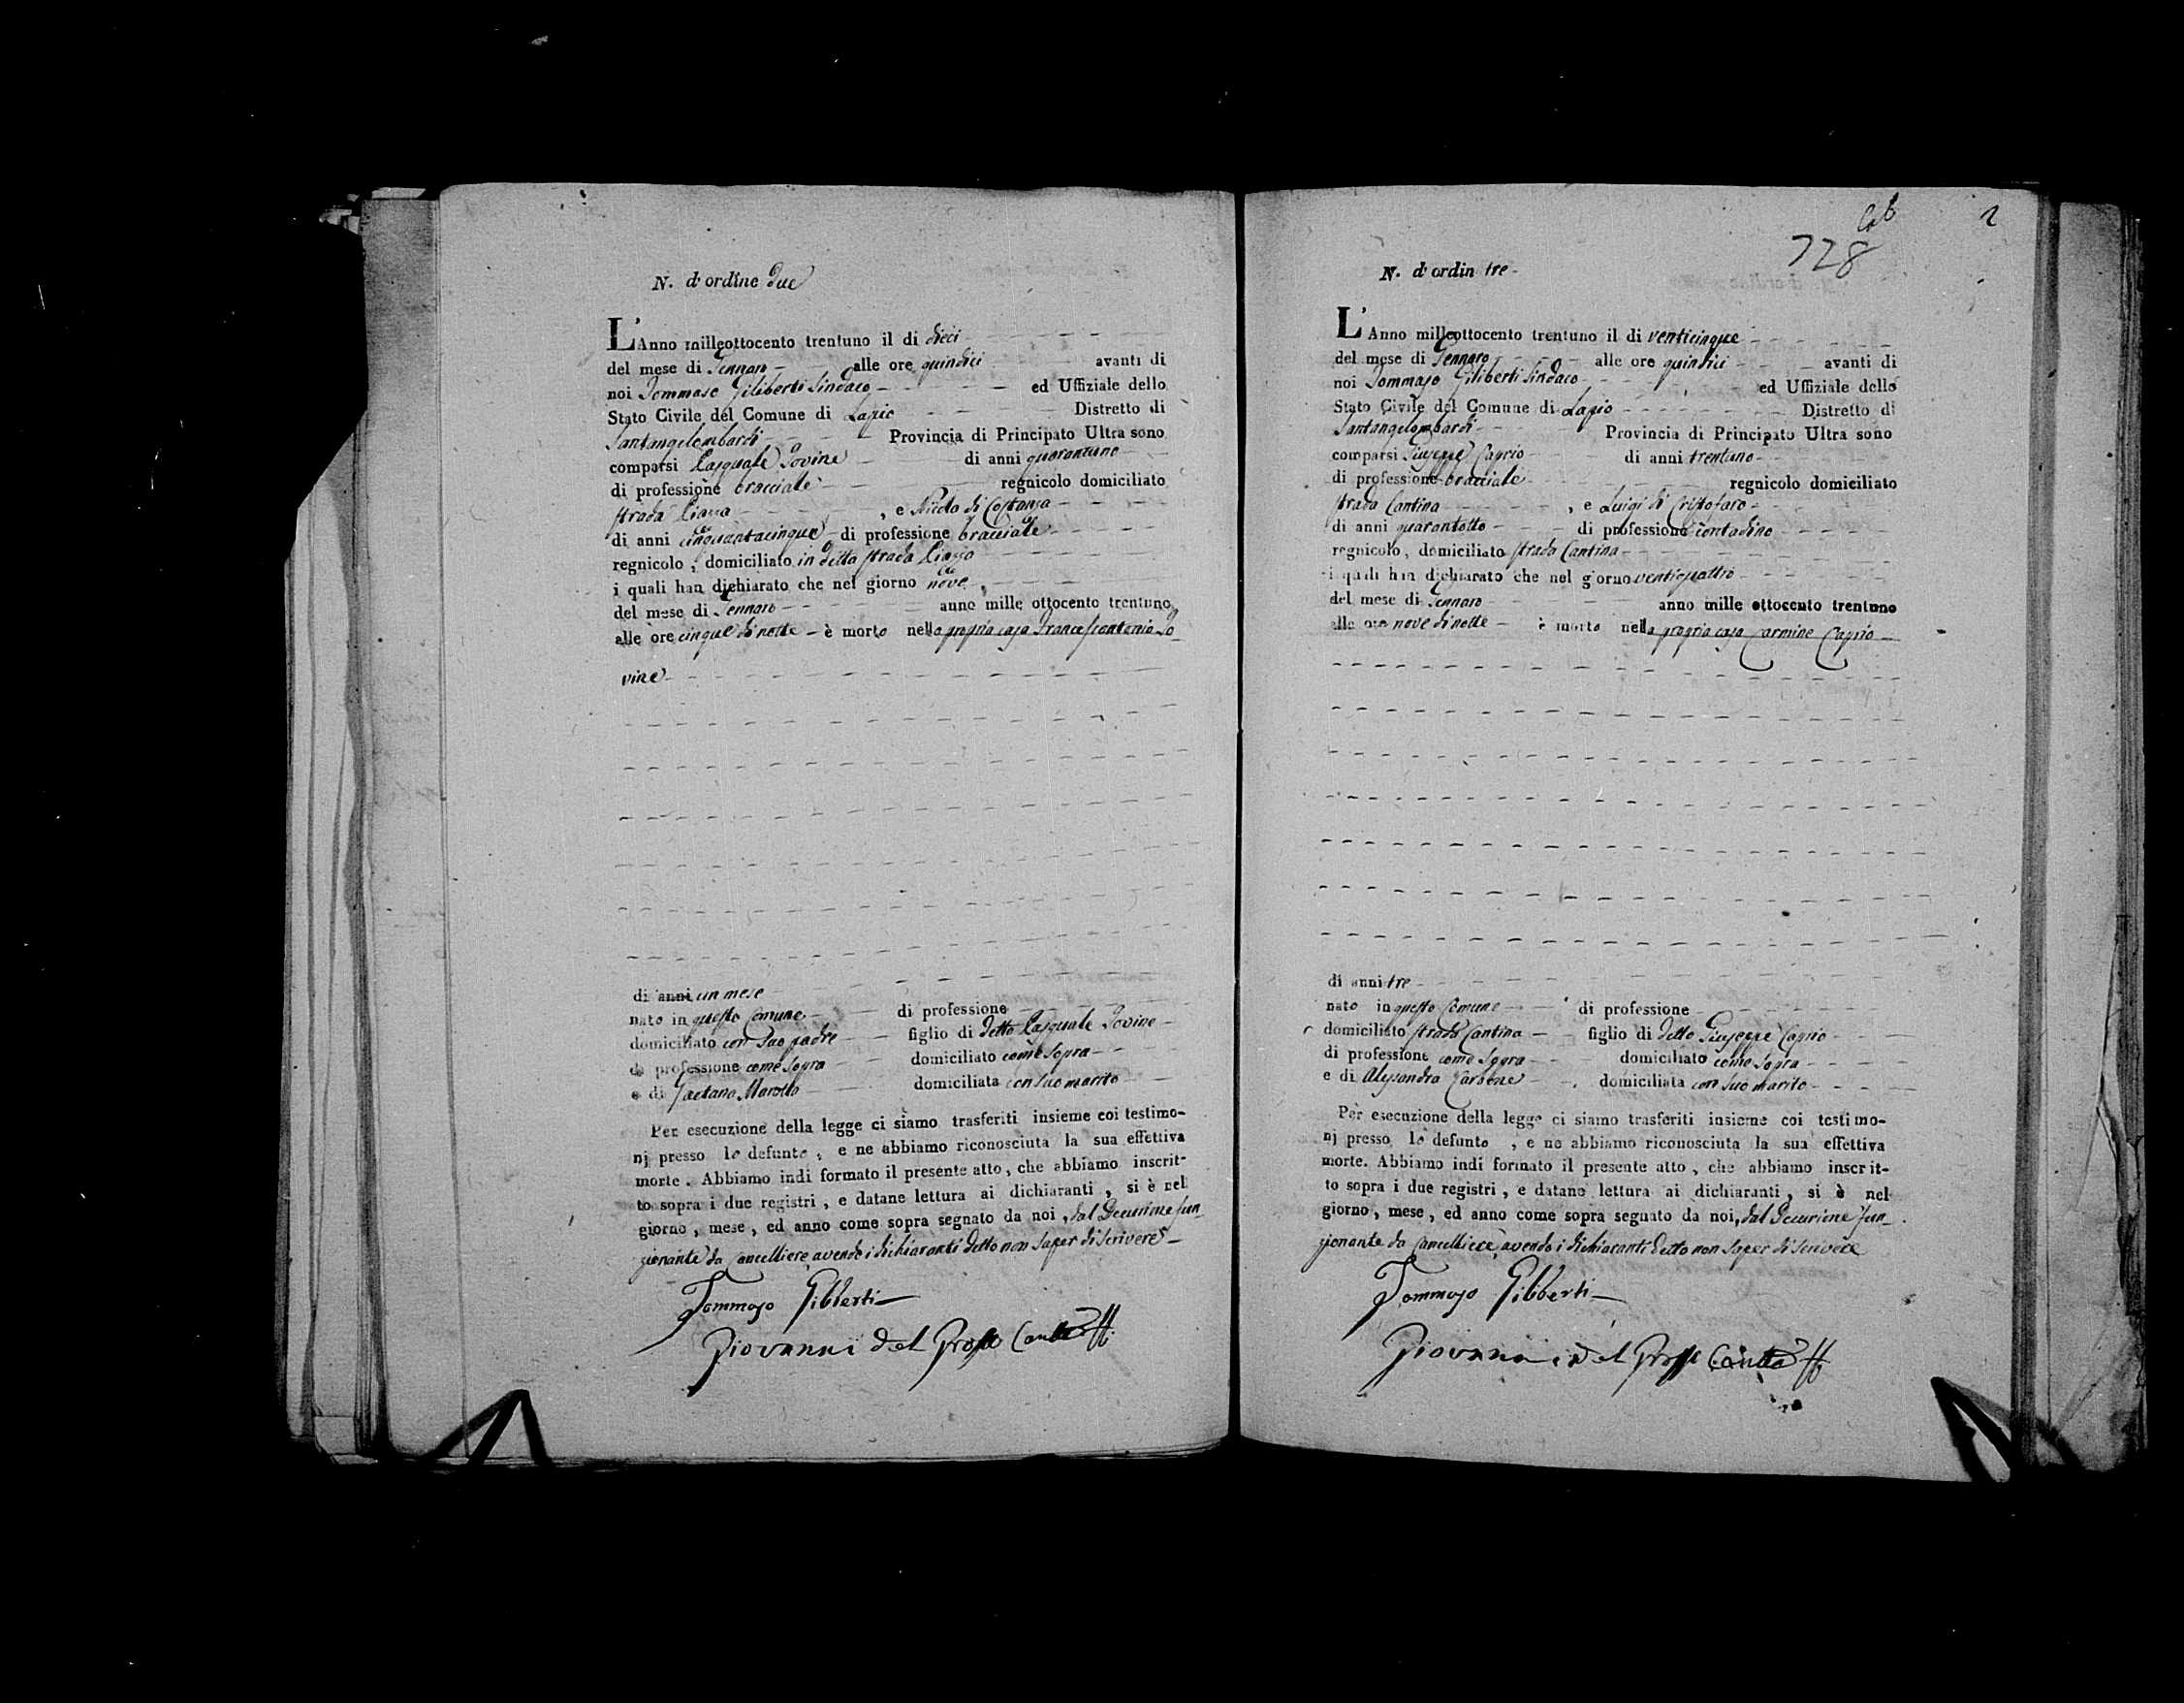 N. d'ordine due
L'Anno milleottocento trentuno il di dieci
del mese di Gennaro alle ore quindici avanti di
noi Tommaso Giliberti Sindaco ed Uffiziale dello
Stato Civile del Comune di Lapio Distretto di
Santangelombardi Provincia di Principato Ultra sono
comparsi Pasquale Iovine di anni quarantuno
di professione bracciale regnicolo domiciliato
strada Piazza , e Nicola di Costanza
di anni cinquantacinque di professione bracciale
regnicolo, domiciliato in detta strada Piazza
i quali han dichiarato che nel giorno nove
del mese di Gennaro anno mille ottocento trentuno
alle ore cinque di notte è morto nella propria casa Francescantonio Io-
vine
di anni un mese
nato in questo Comune di professione
domiciliato con suo padre figlio di detto Pasquale Iovine
di professione come sopra domiciliato come sopra
e di Gaetana domiciliata con suo marito
Per esecuzione della legge ci siamo trasferiti insieme coi testimo-
nj presso lo defunto, e ne abbiamo riconosciuta la sua effettiva
morte. Abbiamo indi formato il presente atto, che abbiamo inscrit-
to sopra i due registri, e datane lettura ai dichiaranti, si è nel
giorno, mese, ed anno come sopra segnato da noi, dal Decurione fun-
zionante da Cancelliere avendo i dichiaranti detto non saper di scrivere
Tommaso Giliberti
Giovanni del
2
728
N. d'ordin tre
L'Anno milleottocento trentuno il di venticinque
del mese di Gennaro alle ore quindici avanti di
noi Tommaso Giliberti Sindaco ed Uffiziale dello
Stato Civile del Comune di Lapio Distretto di
Santangelombardi Provincia di Principato Ultra sono
comparsi Giuseppe Caprio di anni trentuno
di professione bracciale regnicolo domiciliato
strada Cantina , e Luigi di Cristofaro
di anni quarantotto di professione contadino
regnicolo, domiciliato strada Cantina
i quali han dichiarato che nel giorno ventiquattro
del mese di Gennaro anno mille ottocento trentuno
alle ore nove di notte è morto nella propria casa Carmine Caprio
di anni tre
nato in questo Comune di professione
domiciliato strada Cantina figlio di detto Giuseppe Caprio
di professione come sopra domiciliato come sopra
e di Alesandra Carbone domiciliata con suo marito
Per esecuzione della legge ci siamo trasferiti insieme coi testimo-
nj presso lo defunto, e ne abbiamo riconosciuta la sua effettiva
morte. Abbiamo indi formato il presente atto, che abbiamo inscrit-
to sopra i due registri, e datane lettura ai dichiaranti, si è nel
giorno, mese, ed anno come sopra segnato da noi, dal Decurione fun-
zionante da Cancelliere avendo i dichiaranti detto non saper di scrivere
Tommaso Giliberti
Giovanni del